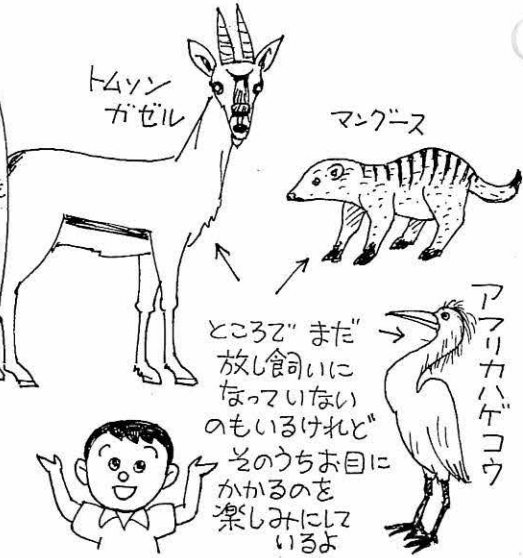 トムソン
ガゼル
マングース
アフリカハゲコウ
ところで まだ
放し飼いに
なっていない
のもいるけれど
そのうちお目に
かかるのを
楽しみにして
いるよ